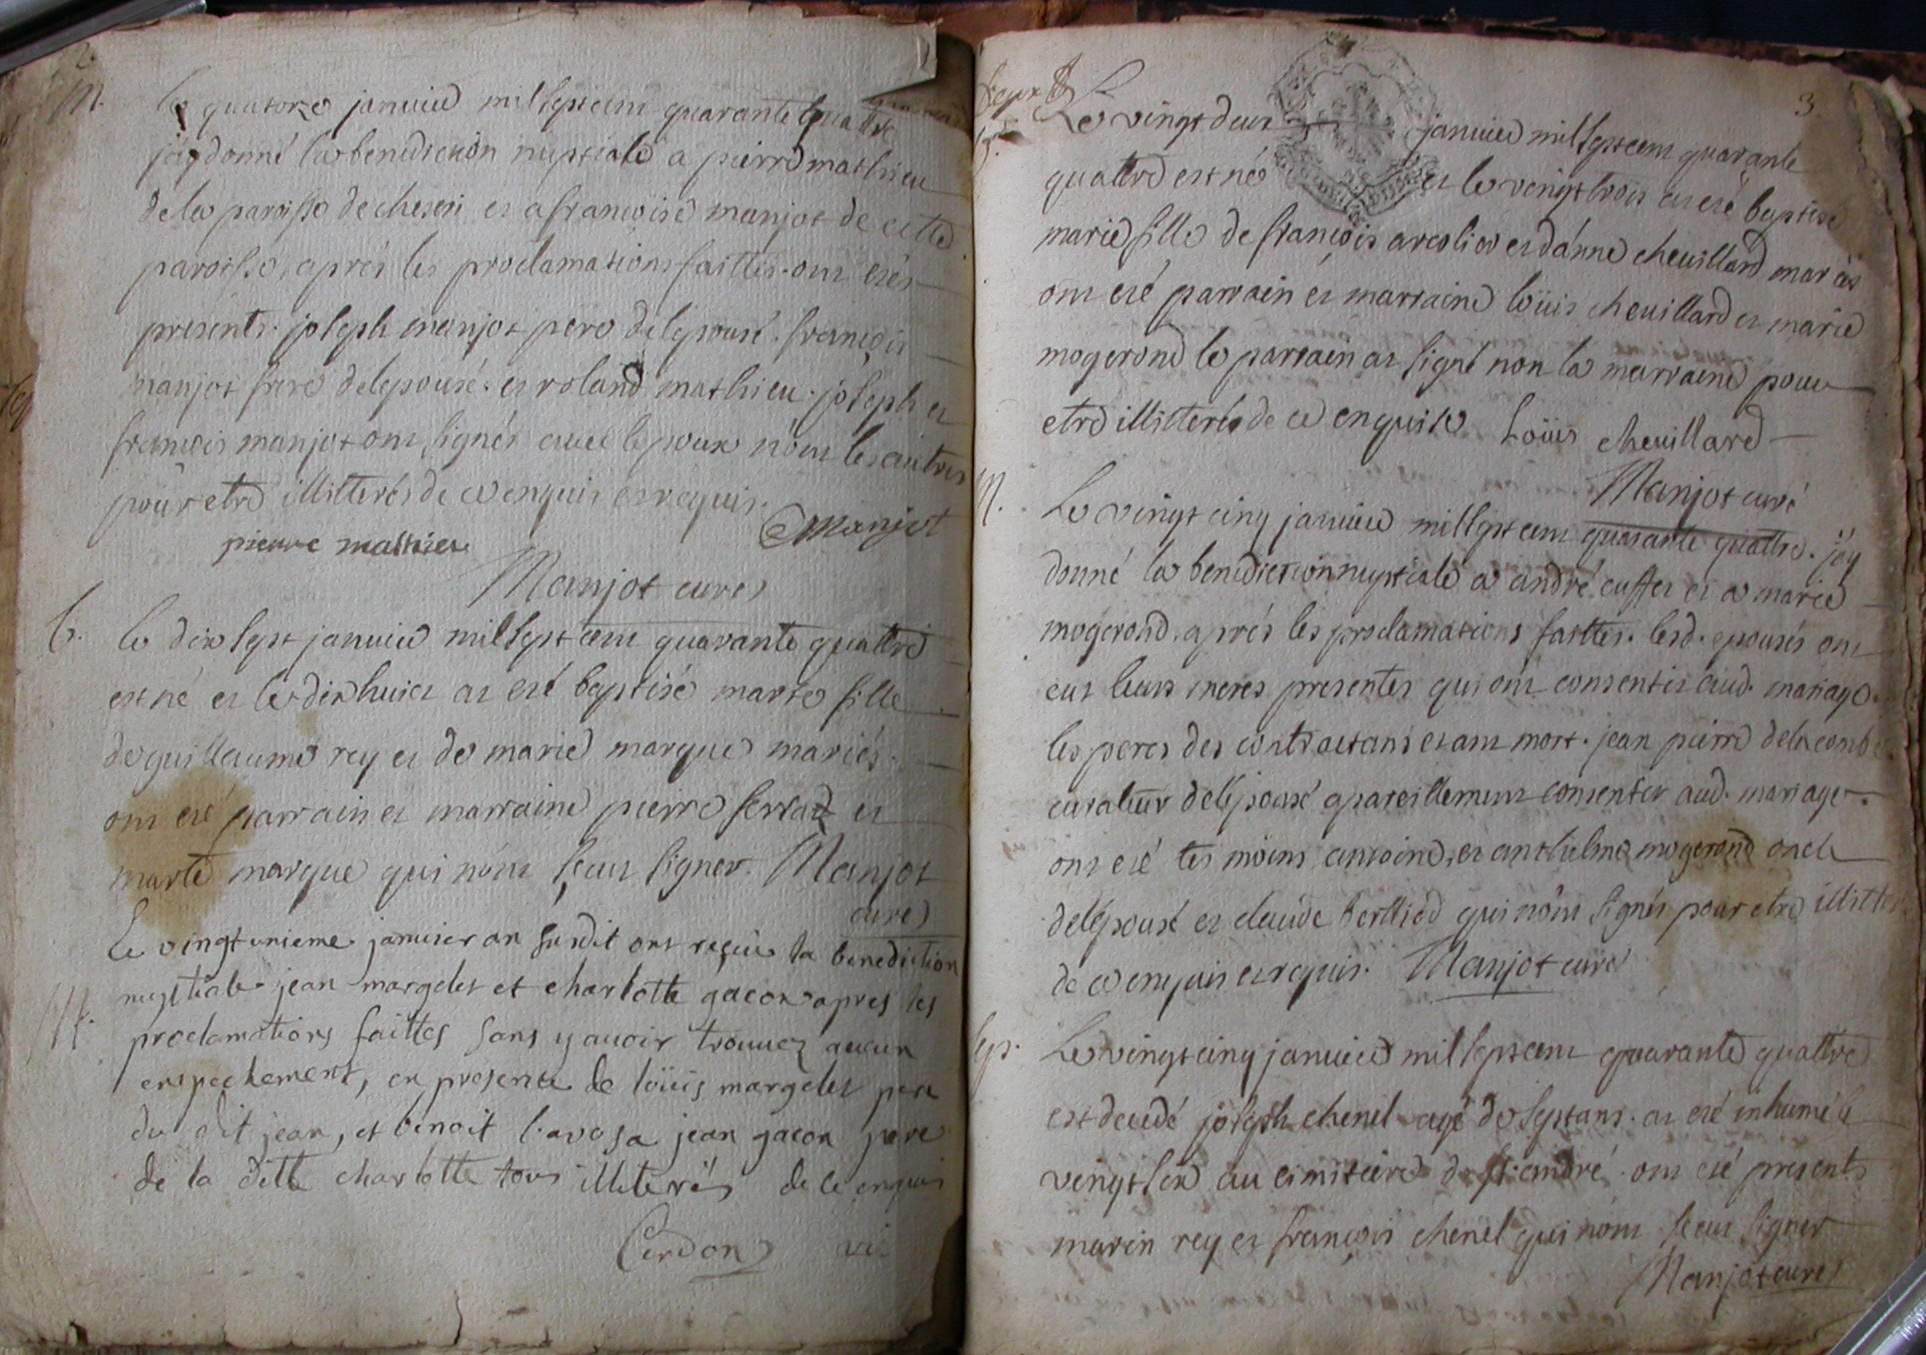 2.
M.
Le quatorze janvier mil sept cent quarante quattre
jay donné la benediction nuptiale a pierre mathieu
de la paroisse de cheseri et a francoise manjot de cette
paroisse, aprés les proclamations faittes. ont etés
présents. joseph manjot pere de lepouse. francois
manjot frere de lepouse. et roland mathieu. joseph et
francois manjot ont signés avec lepoux nòm les autres
pour etre illitterés de ce enquis et requis.
Manjot
pierre mathieu
Manjot curé
b. le dix sept janvier mil sept cent quarante quattre
est né et le dix huict at eté baptisé marte fille
de guillaume rey et de marie marque mariés.
ont eté parrain et marraine pierre ferraz et
marte marque qui nònt sceut signer. Manjot
curé
Le vingt unieme janvier an susdit ont reçeu la benediction
M. nuptiale jean margelet et charlotte gacon apres les
proclamations faittes sans y avoir trouvez aucun
enpechement, en presence de loüis margelet pere
du dit jean, et benoit jean gacon pere
de la ditte charlotte tous illiterés de ce enquis
Cerdon vic
3
b. Le vingt deux janvier mil sept cent quarante
quattre est né et le vingt trois at eté baptisé
marie fille de françois arcolier et dánne chevillard mariés
ont eté parrain et marraine loüis chevillard et marie
mogerond le parrain at signé non la marraine pour
etre illitterée de ce enquise Loüis chevillard
Manjot curé
M. Le vingt cinq janvier mil sept cent quarante quattre. jay
donné la benediction nuptiale a andré cuffet et a marie
mogerond. aprés les proclamations faittes. lesd. epousés ont
eut leurs meres presentes qui ont consenties aud. mariage.
les peres des contractans etant mort. jean pierre delacombe
curateur de lépouse a pareillement consentir aud. mariage.
ont eté tesmoins antoine, et anthelme mogerond oncle
de lépouse et claude berthed qui nònt signés pour etre illitterés
de ce enquis et requis. Manjot curé
sep. Le vingt cinq janvier mil sept cent quarante quattre
est decedé joseph chenel agé de sept ans. at eté inhumé le
vingt six au cimitiere de st. andré. ont eté presents
marin rey et françois chenel qui nònt sceut signer
Manjot curé